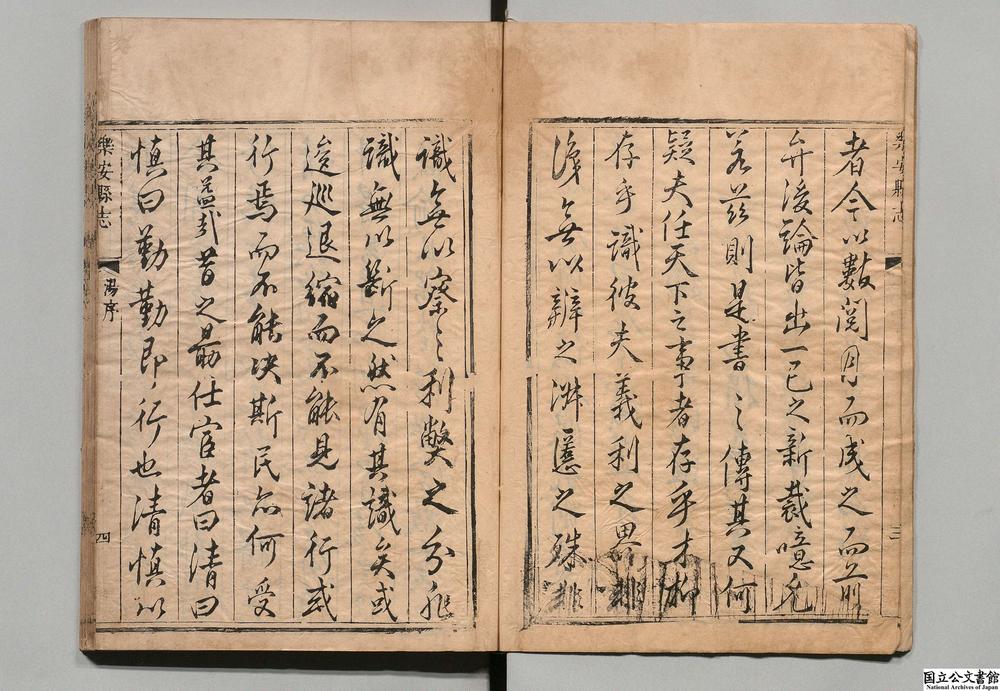 者今以數閱月而成之而前
弁後論皆出一己之新裁噫允
若茲則是書之傳其又何
疑夫任天下之事者存乎才抑
存乎識彼夫義利之界非
識無以辨之淑慝之殊非
識無以察之利弊之分非
識無以斷之然有其識矣或
逡巡退縮而不能見諸行或
行焉而不能决斯民亦何受
其益哉昔之最仕官者曰清曰
慎曰勤勤即行也清慎以
樂安縣志
三
樂安縣志
湯序
四
国立公文書館
National Archives of Japan